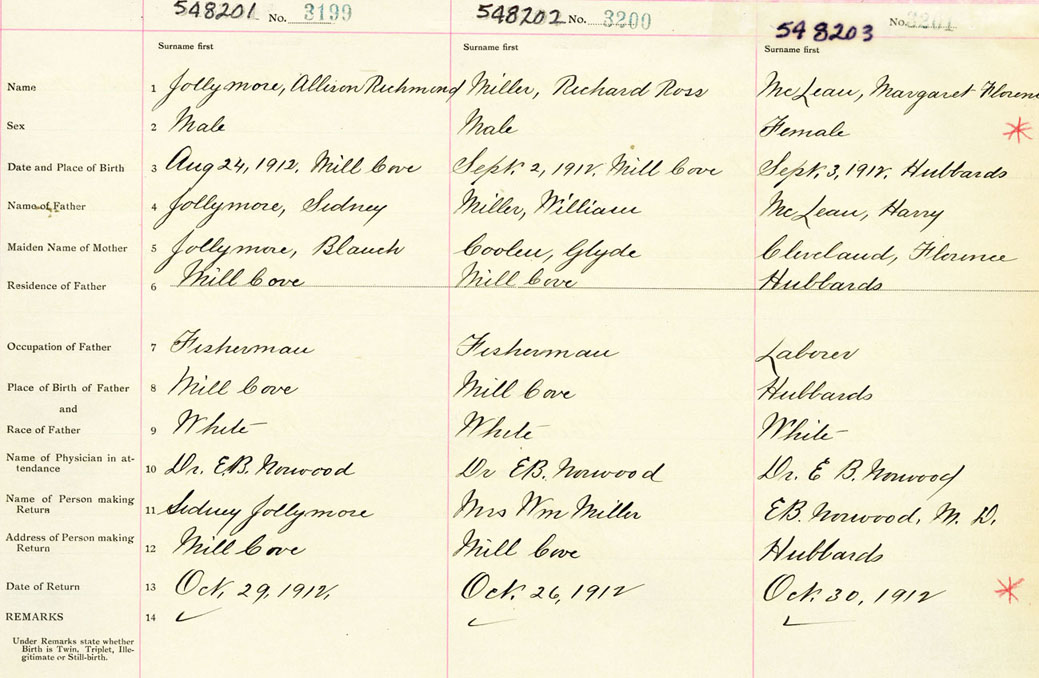 548201 No. 3199 548202 No. 3200 548203 No. 3201
Surname first Surname first Surname first
Name 1 Jollymore, Allison Richmond Miller, Richard Ross McLean, Margaret Floren
Sex 2 Male Male Female *
Date and Place of Birth 3 Aug 24, 1912. Mill Cove Sept. 2, 1912. Mill Cove Sept. 3, 1912. Hubbards
Name of Father 4 Jollymore, Sidney Miller, William McLean, Harry
Maiden Name of Mother 5 Jollymore, Blanch Coolen, Glyde Cleveland, Florence
Residence of Father 6 Mill Cove Mill Cove Hubbards
Occupation of Father 7 Fisherman Fisherman Laborer
Place of Birth of Father 8 Mill Cove Mill Cove Hubbards
and
Race of Father 9 White White White
Name of Physician in at-
tendance 10 Dr. E.B. Norwood Dr E.B. Norwood Dr. E B. Norwood
Name of Person making
Return 11 Sidney Jollymore Mrs Wm Miller E.B. Norwood, M. D.
Address of Person making
Return 12 Mill Cove Mill Cove Hubbards
Date of Return 13 Oct. 29, 1912. Oct. 26, 1912 Oct. 30, 1912 *
REMARKS 14 ✓ ✓ ✓
Under Remarks state whether
Birth is Twin, Triplet, Ille-
gitimate or Still-birth.